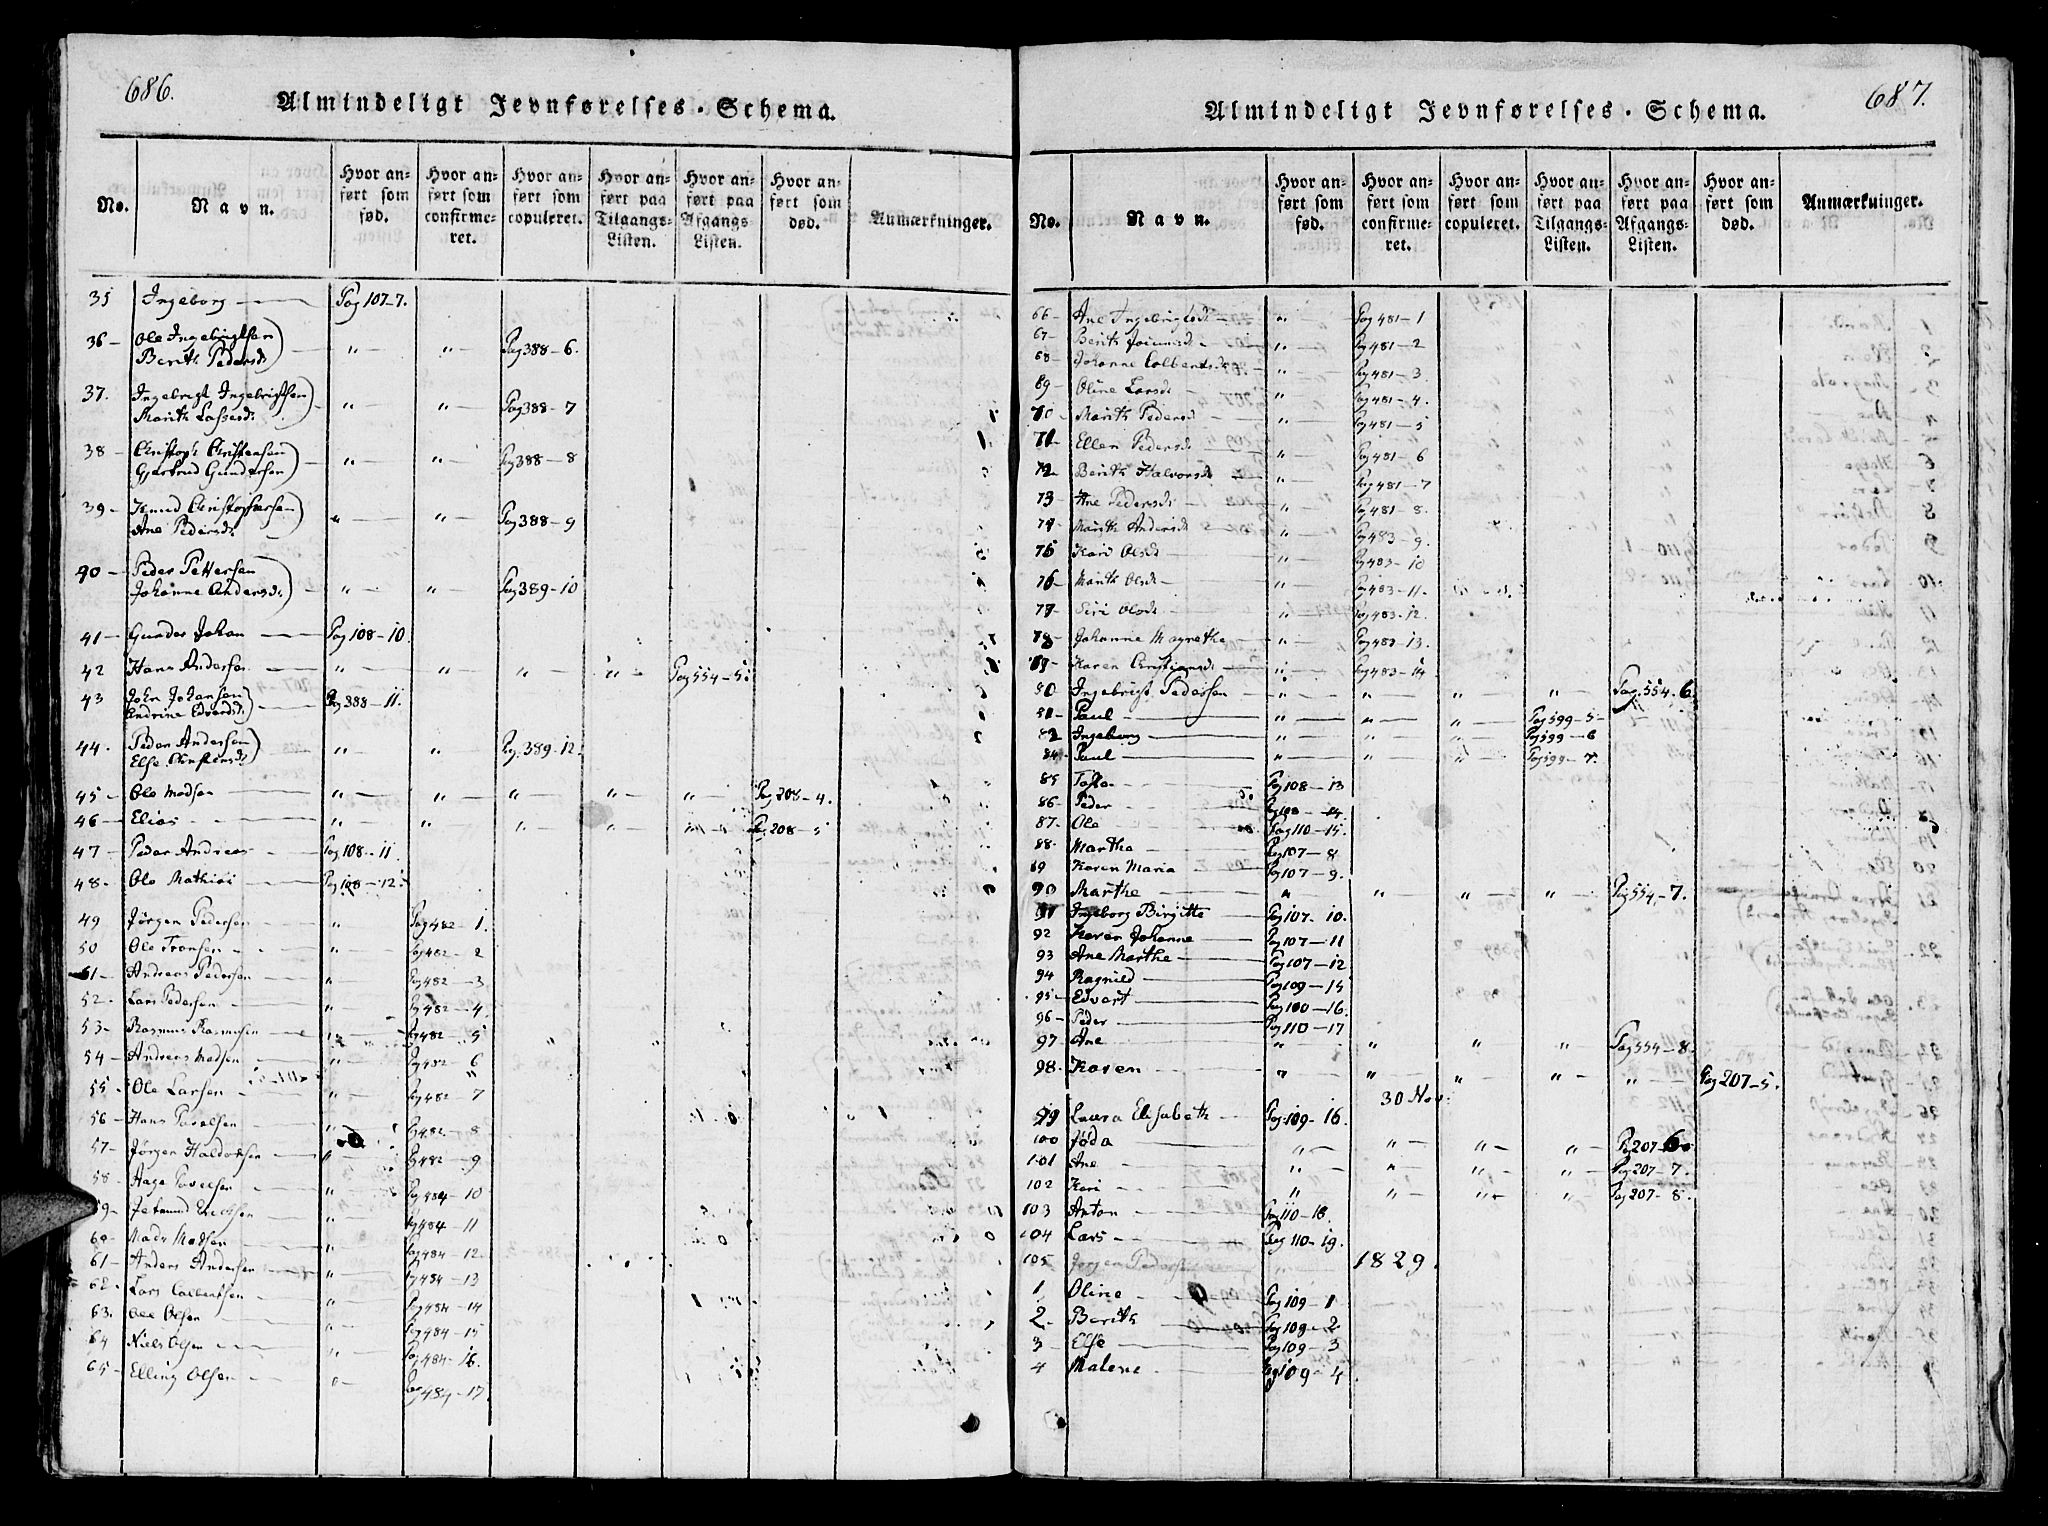 686.
Almindeligt Jevnførelses-Schema.
No. Navn. Hvor anført som fød. Hvor anført som confirmeret. Hvor anført som copuleret. Hvor anført paa Tilgangs-Listen. Hvor anført paa Afgangs-Listen. Hvor anført som død. Anmærkninger.
35 Ingeborg — Pag 107-7.
36 - Ole Ingebrigtsen
Berith Pedersd. " " Pag 388-6.
37. Ingebrigt Ingebrigtsen
Marith Lassesd. " " Pag 388-7
38 - Christop's Christensen
Gjertrud Gundersen " " Pag 388-8
39 - Knud Christophersen
Ane Pedersd. " " Pag 388-9
40 - Peder Pettersen
Johanne Andersd. " " Pag 389-10
41 - Gunder Johan — Pag 108-10.
42 Hans Andersen " " " " Pag 554-5.
43 John Johansen
Andrine Edvardsd. Pag 388-11.
44. Peder Andersen
Else Christensd. " " Pag. 389-12.
45 - Ole Madsen " " " " " Pag 208-4.
46 - Elias " " " " " Pag. 208-5
47 - Peder Andreas Pag 108-11.
48. Ole Mathias Pag 108-12.
49 Jørgen Pedersen " Pag 482-1.
50 Ole Tronsen " Pag 482-2
51 - Andreas Pedersen " Pag 482-3
52. Lars Pedersen " Pag 482-4.
53 - Rasmus Rasmusen " Pag 482-5
54 - Andreas Madsen " Pag 482-6
55. Ole Larsen " Pag 482-7
56 - Hans Povelsen " Pag 482-8
57 - Jørgen Haldorsen " Pag 482-9
58. Aage Povelsen " Pag 484-10
59 - Jetmund " Pag 484-11
60 - Mads Madsen " Pag 484-12.
61 - Anders Andersen " Pag 484-13
62. Lars Colbentsen " Pag 484-14
63. Ole Olsen " Pag 484-15
64 Niels Olsen " Pag 484-16.
65 - Elling Olsen " Pag 484-17.
687.
Almindeligt Jevnførelses-Schema.
No. Navn. Hvor anført som fød. Hvor anført som confirmeret. Hvor anført som copuleret. Hvor anført paa Tilgangs-Listen. Hvor anført paa Afgangs-Listen. Hvor anført som død. Anmærkninger.
66 - Ane Ingebrigtsd. " Pag 481-1
67 - Berith " Pag 481-2
68 - Johanne Colbentsd. " Pag 481-3.
69 - Oline Larsd. " Pag 481-4.
70 - Marith Pedersd. " Pag 481-5
71 - Ellen Pedersd. " Pag 481-6
72. Berith Halvorsd. " Pag 481-7
73 - Ane Pedersd. " Pag 481-8.
74 Marith Andersd. " Pag 483-9.
75 Kari Olsd. " Pag 483-10
76 - Marith Olsd. " Pag 483-11.
77 - Siri Olsd. " Pag 483-12.
78 - Johanne Magrethe " Pag 483-13.
79 - Karen Christiansd. " Pag 483-14
80 - Ingebrigt Pedersen " " " " Pag. 554-6.
81 - Paul " " " Pag 599-5-
82 Ingeborg " " " Pag 599-6
84 - Paul " " " Pag 599-7.
85 Pag 108-13
86 - Peder Pag 108-14.
87. Ole Pag 110-15.
88. Martha Pag 107-8
89 Karen Maria Pag 107-9.
90 Marthe " " " " Pag 554-7.
91 Ingeborg Birgitte Pag 107-10.
92 Karen Johanne Pag 107-11
93 Ane Marthe Pag 107-12
94 Ragnild Pag 109-15
95 - Edvart Pag 100-16.
96 - Peder Pag 110-17
97 - Ane " " " " Pag 554-8.
98. Karen " " " " " Pag 207-5.
30 Nov:
99 Laura Elisabeth Pag 109-16.
100 Jøda " " " " Pag 207-6
101 Ane " " " " Pag 207-7.
102 Kari " " " " Pag 207-8.
103 Anton Pag 110-18.
104 Lars Pag 110-19.
105 Jørgen
1829.
1. Oline Pag 109-1
2. Berith Pag 109-2.
3 Else Pag 109-3
4 Malene Pag 109-4